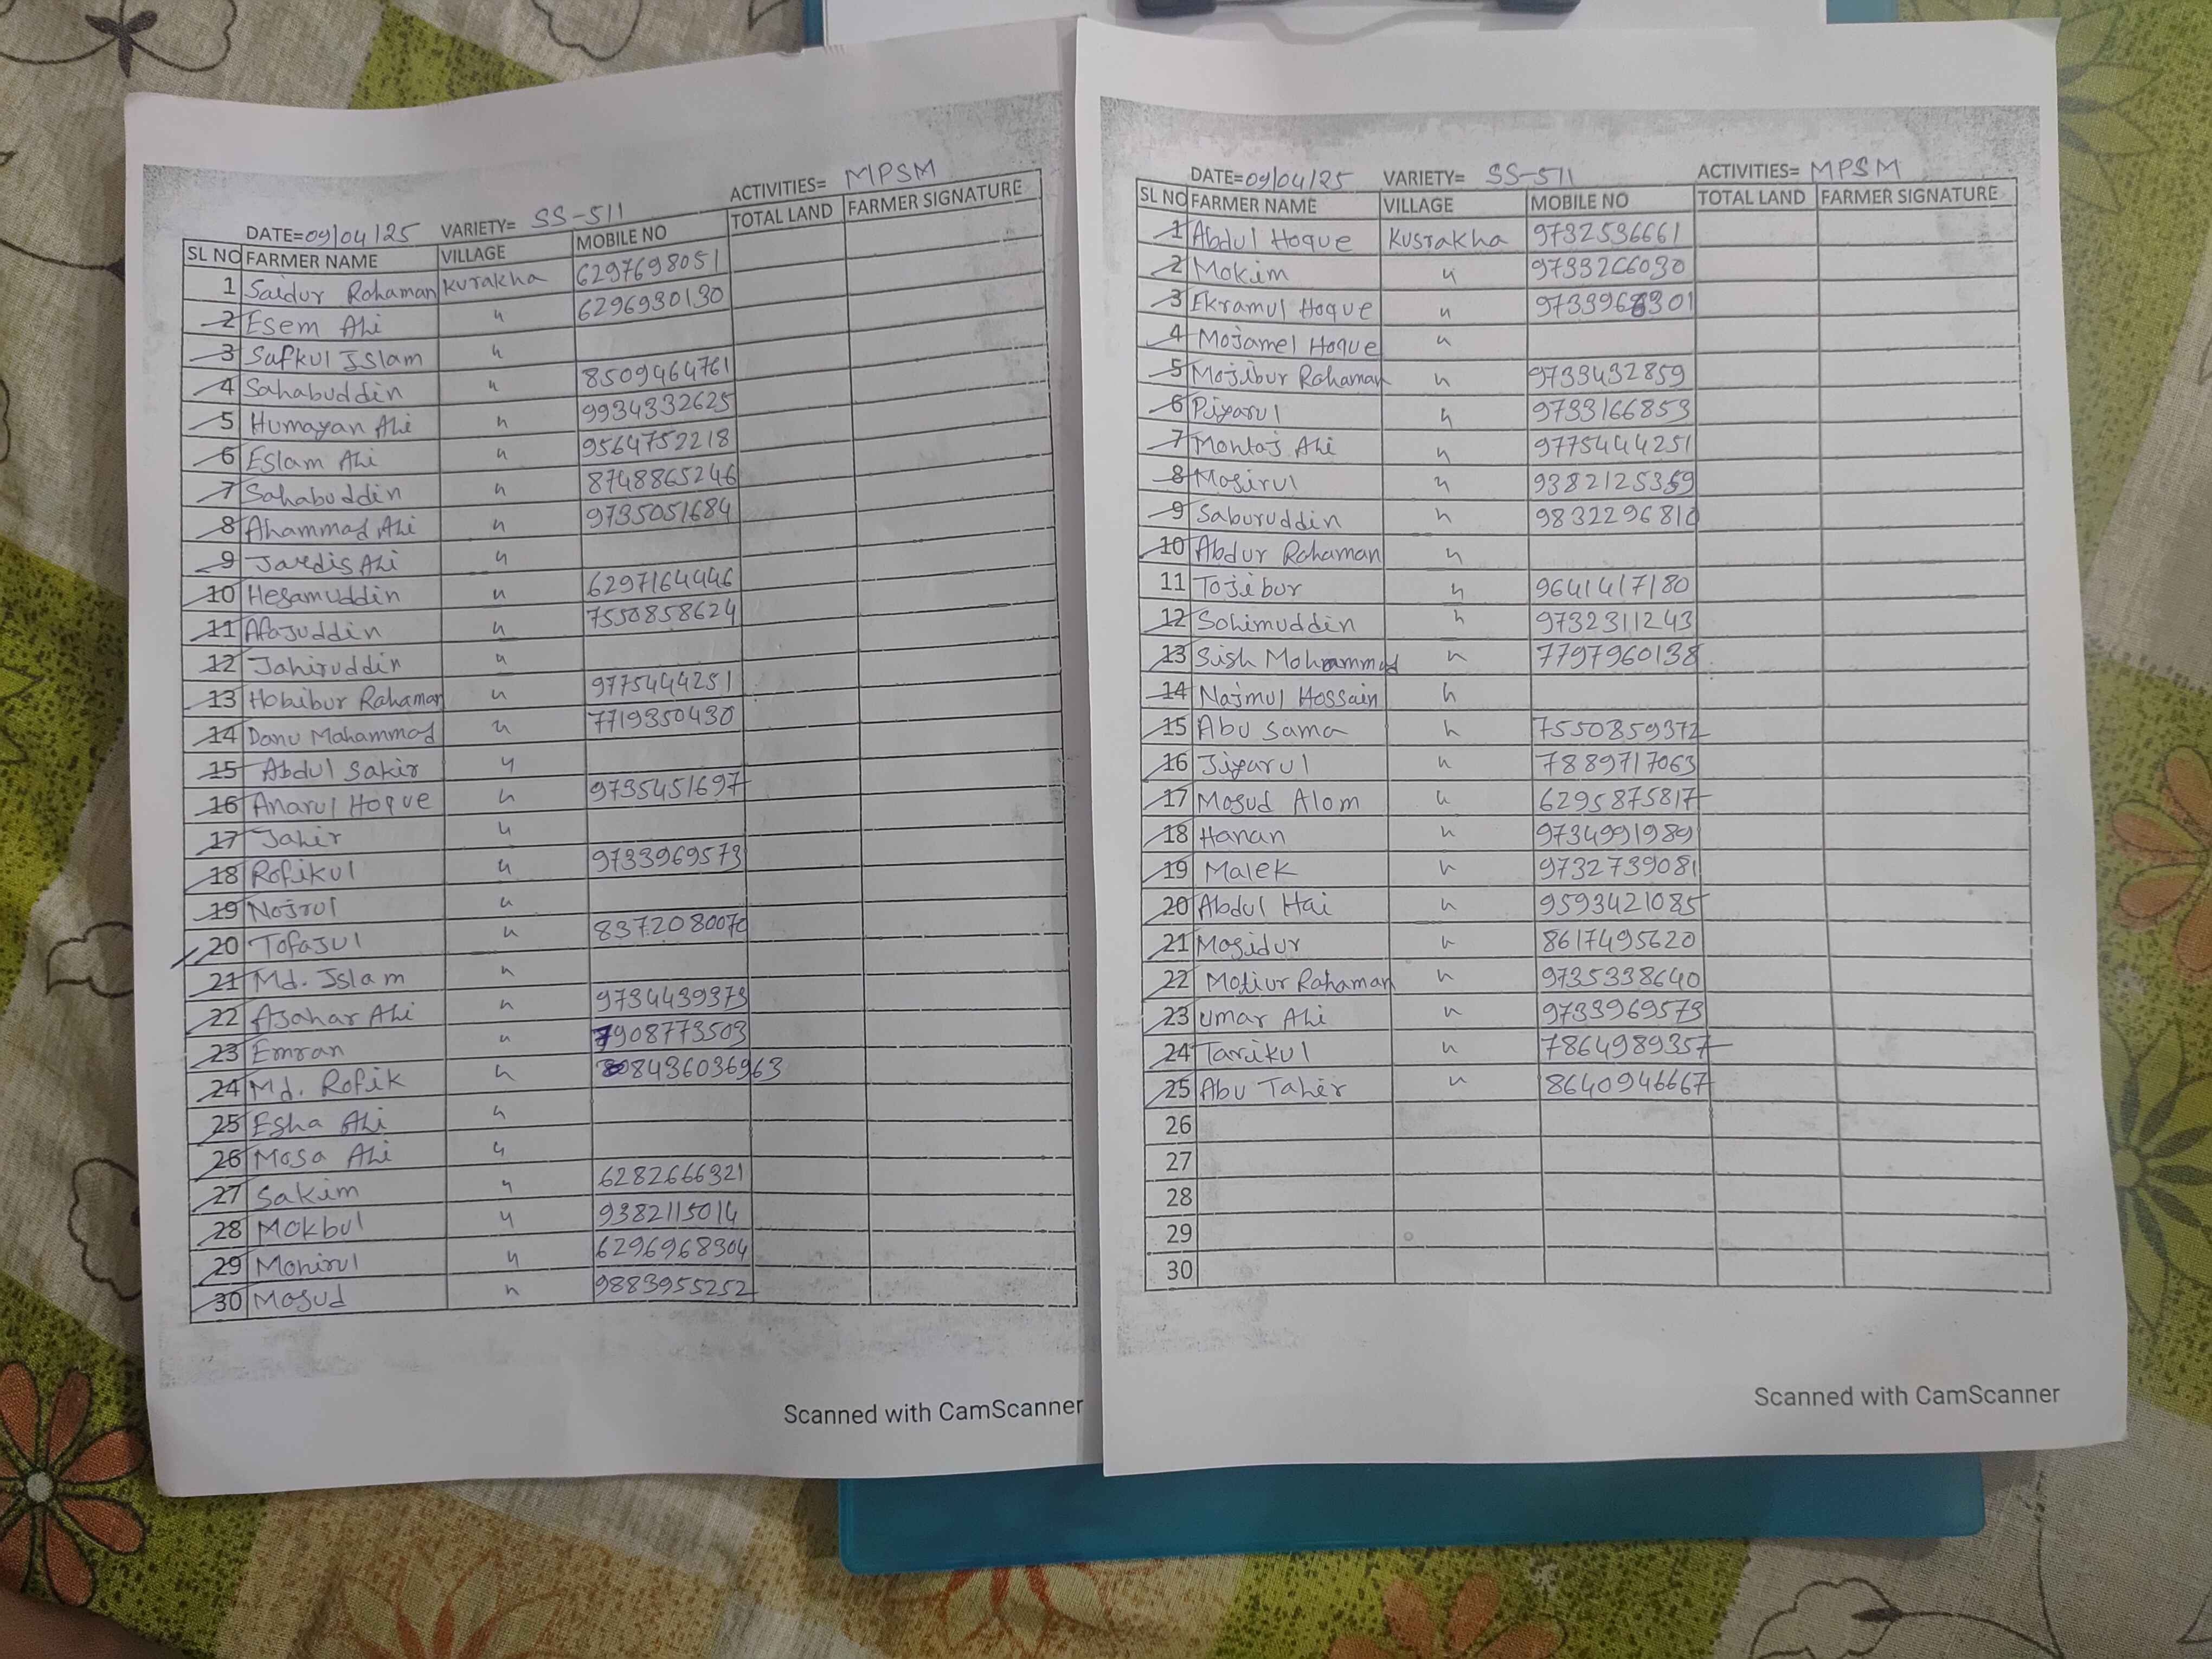 DATE=09/04/25 VARIETY= SS-511 ACTIVITIES= MPSM
SL NO FARMER NAME VILLAGE MOBILE NO TOTAL LAND FARMER SIGNATURE
1 Saidur Rahaman Kurakha 6297698051
2 Esem Ali " 6296930130
3 Safkul Islam "
4 Sahabuddin " 8509464761
5 Humayan Ali " 9934332625
6 Eslam Ali " 9564752218
7 Sahabuddin " 8748865246
8 Ahammad Ali " 9735051684
9 Jardis Ali "
10 Hesamuddin " 6297164446
11 Afajuddin " 7550858624
12 Jahiruddin "
13 Hobibur Rahaman " 9775444251
14 Danu Mahammad " 7719350430
15 Abdul Sakir "
16 Anarul Hoque " 9735451697
17 Jahir "
18 Rofikul " 9733969573
19 Nojrul "
20 Tofajul " 8372080070
21 Md. Islam "
22 Ajahar Ali " 9734439373
23 Emran " 7908773503
24 Md. Rofik " 8436036963
25 Esha Ali "
26 Mosa Ali "
27 Sakim " 6282666321
28 Mokbul " 9382115014
29 Monirul " 6296968304
30 Mosud " 9883955252
Scanned with CamScanner
DATE=09/04/25 VARIETY= SS-511 ACTIVITIES= MPSM
SL NO FARMER NAME VILLAGE MOBILE NO TOTAL LAND FARMER SIGNATURE
1 Abdul Hoque Kusrakha 9732536661
2 Mokim " 9733266030
3 Ekramul Hoque " 9733968301
4 Mojamel Hoque "
5 Mojibur Rahaman " 9733432859
6 Piyarul " 9733166853
7 Montaj Ali " 9775444251
8 Mosirul " 9382125359
9 Saburuddin " 9832296810
10 Abdur Rahaman "
11 Tojibur " 9641417180
12 Sohimuddin " 9732311243
13 Sish Mohammad " 7797960138
14 Najmul Hossain "
15 Abu Sama " 7550859372
16 Jiyarul " 7889717063
17 Mosud Alom " 6295875817
18 Hanan " 9734991989
19 Malek " 9732739081
20 Abdul Hai " 9593421085
21 Mosidur " 8617495620
22 Motiur Rahaman " 9735338640
23 Umar Ali " 9733969573
24 Tarikul " 7864989357
25 Abu Taher " 8640946667
26
27
28
29
30
Scanned with CamScanner